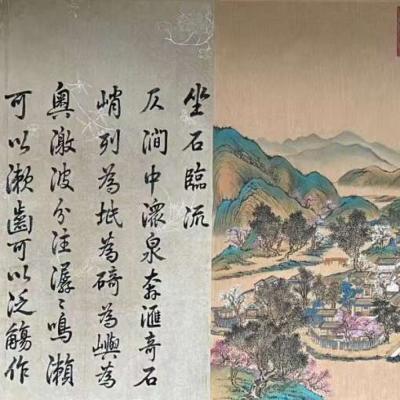 坐石臨流
仄澗中潨泉奔匯奇石
峭列為坻為碕為嶼為
奧激波分注潺〻鳴瀨
可以漱齒可以泛觴作